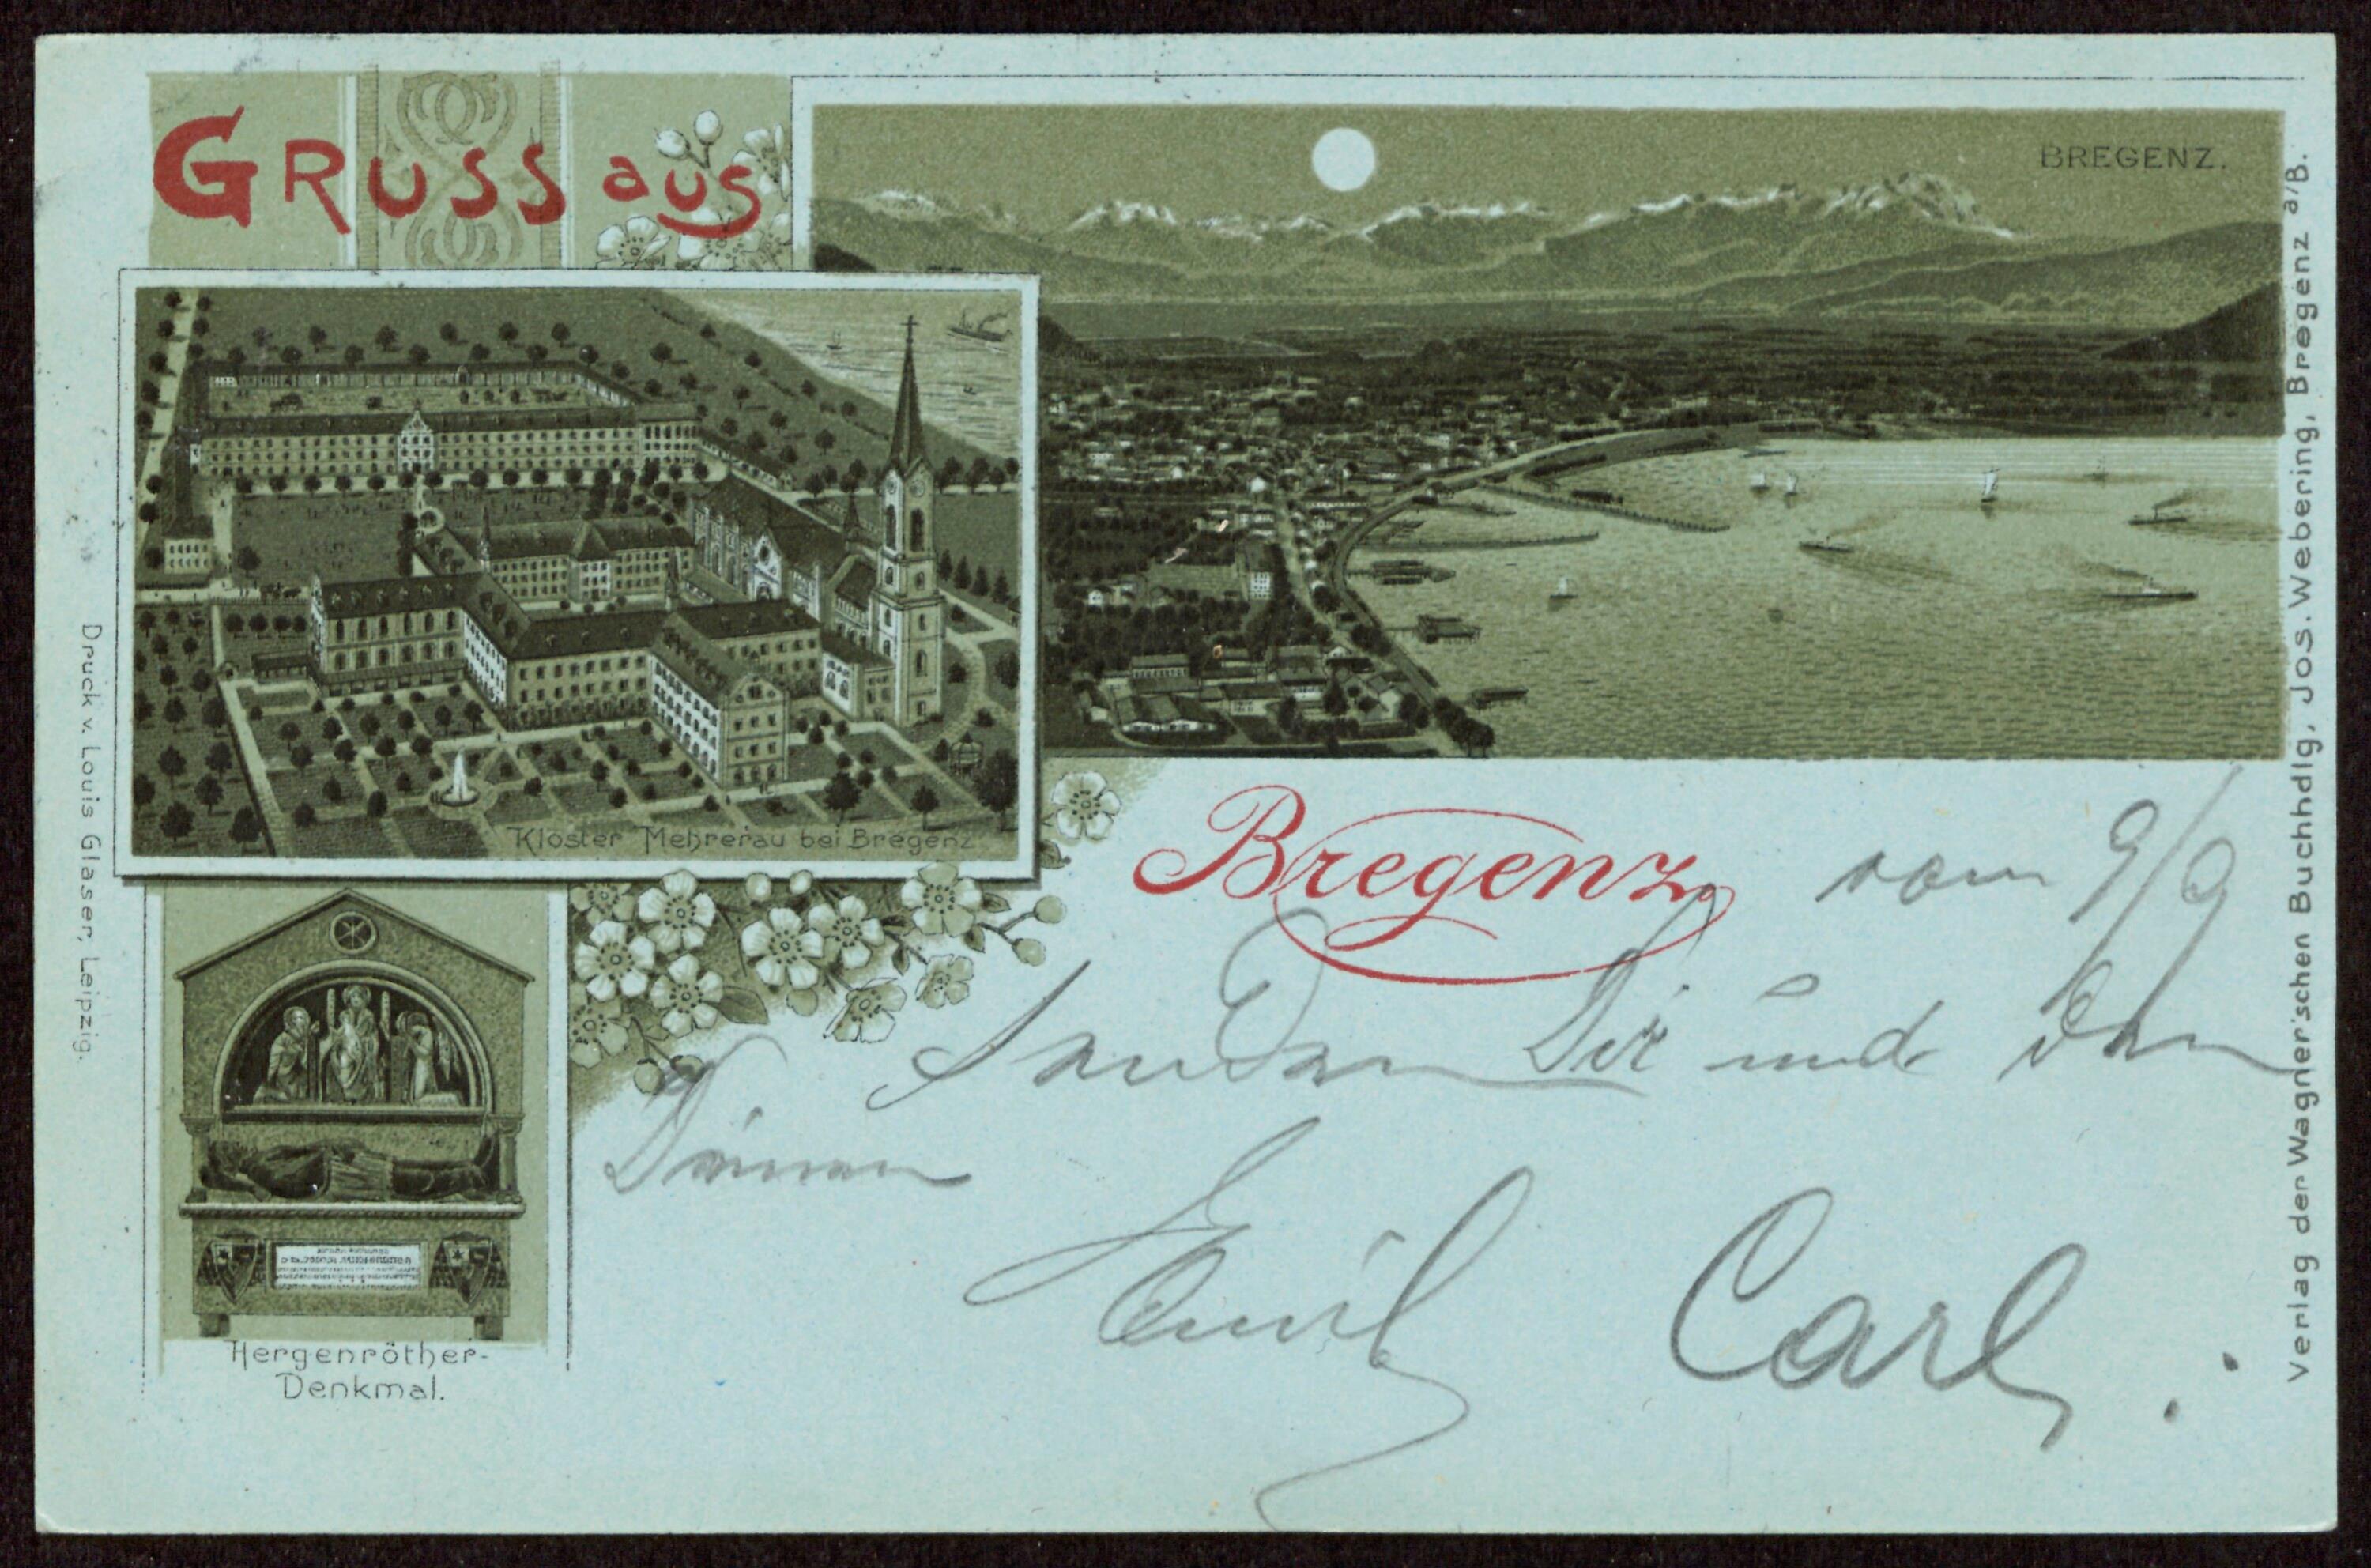 GRUSS aus
BREGENZ.
Kloster Mehrerau bei Bregenz
Bregenz. vom 9/9
senden Dir und den
Deinen
Emil Carl.
Hergenröther-
Denkmal.
Druck v. Louis Glaser, Leipzig.
Verlag der Wagner'schen Buchhdlg, Jos. Webering, Bregenz a/B.